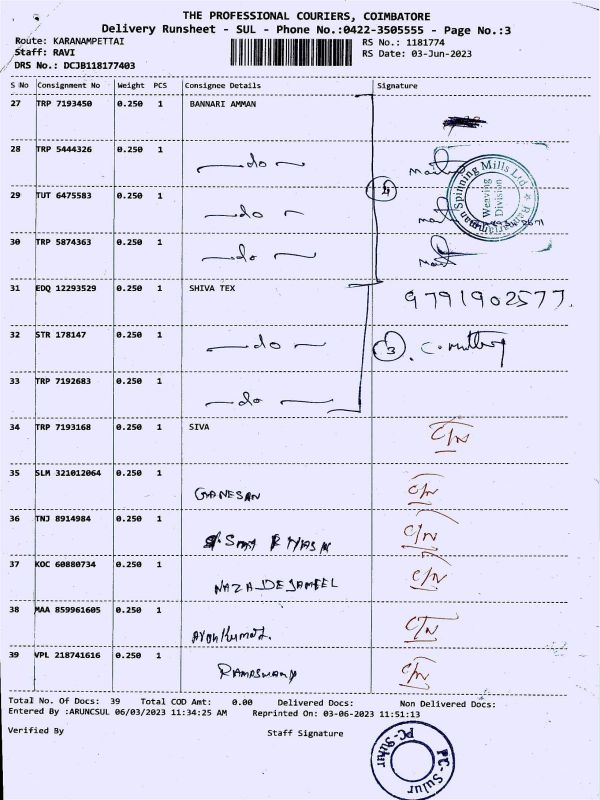 THE PROFESSIONAL COURIERS, COIMBATORE
Delivery Runsheet - SUL - Phone No.:0422-3505555 - Page No.:3
Route: KARANAMPETTAI RS No.: 1181774
Staff: RAVI RS Date: 03-Jun-2023
DRS No.: DCJB118177403
S No Consignment No Weight PCS Consignee Details Signature
27 TRP 7193450 0.250 1 BANNARI AMMAN
28 TRP 5444326 0.250 1 —do—
29 TUT 6475583 0.250 1 —do—
30 TRP 5874363 0.250 1 —do—
4
Spinning Mills Ltd
Weaving
Division
31 EDQ 12293529 0.250 1 SHIVA TEX 9791902577.
32 STR 178147 0.250 1 —do— 3
33 TRP 7192683 0.250 1 —do—
34 TRP 7193168 0.250 1 SIVA C/N
35 SLM 321012064 0.250 1 GANESAN C/N
36 TNJ 8914984 0.250 1 C/N
37 KOC 60880734 0.250 1 NAZADEJAMEEL C/N
38 MAA 859961605 0.250 1 C/N
39 VPL 218741616 0.250 1 RAMASWAMY C/N
Total No. Of Docs: 39 Total COD Amt: 0.00 Delivered Docs: Non Delivered Docs:
Entered By :ARUNCSUL 06/03/2023 11:34:25 AM Reprinted On: 03-06-2023 11:51:13
Verified By Staff Signature
PC-Sulur
PC-Sulur